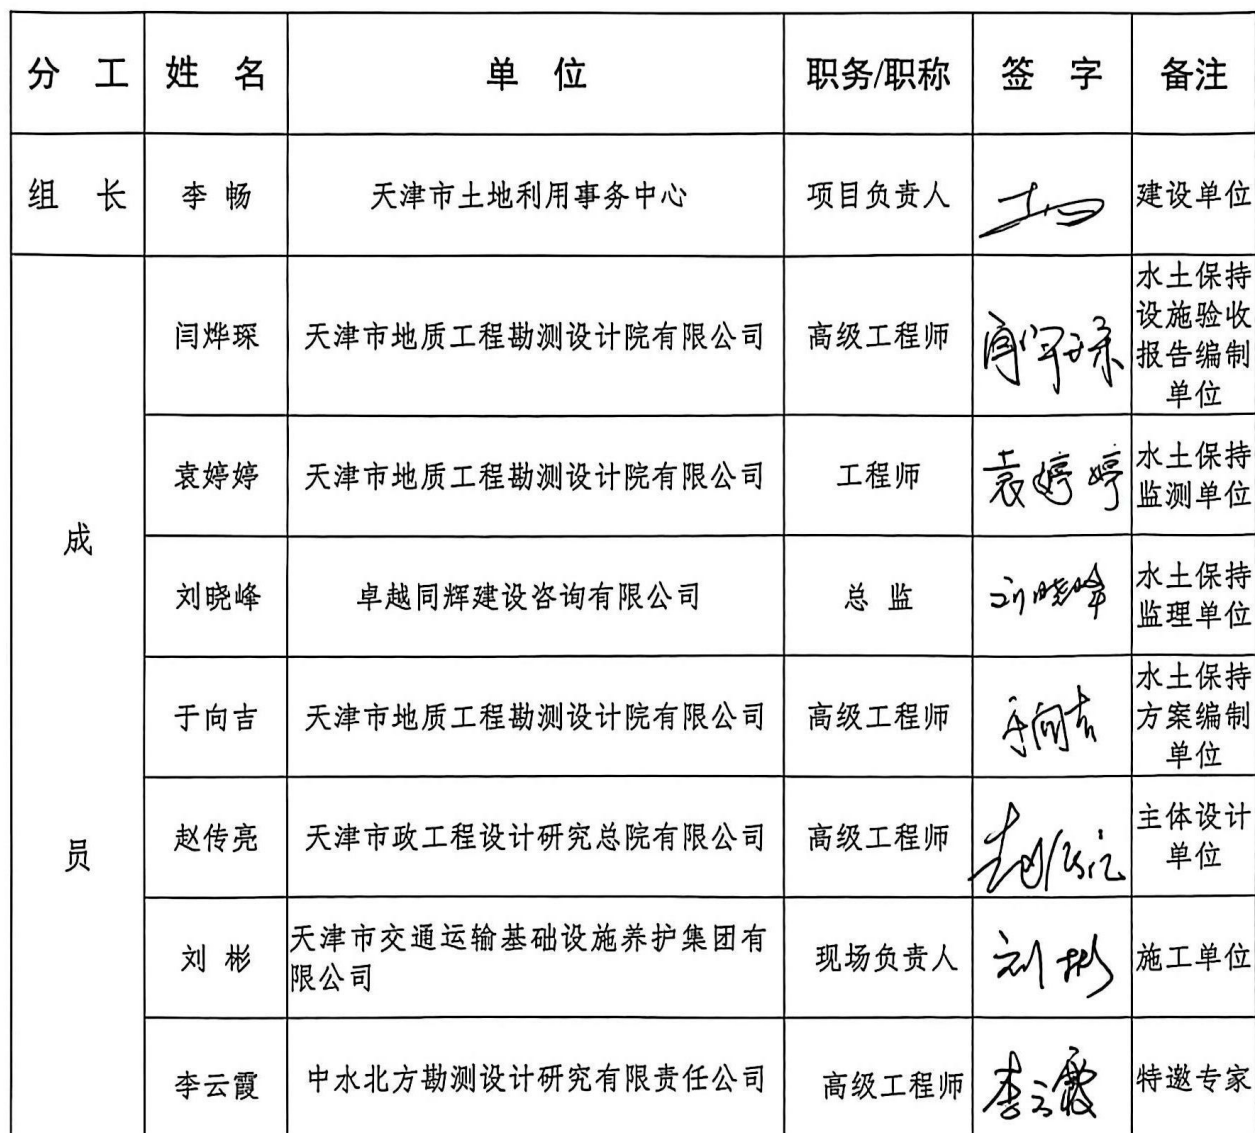 分 工 姓 名 单 位 职务/职称 签 字 备注
组 长 李 畅 天津市土地利用事务中心 项目负责人 建设单位
成
员
闫烨琛 天津市地质工程勘测设计院有限公司 高级工程师 闫烨琛 水土保持
设施验收
报告编制
单位
袁婷婷 天津市地质工程勘测设计院有限公司 工程师 袁婷婷 水土保持
监测单位
刘晓峰 卓越同辉建设咨询有限公司 总 监 刘晓峰 水土保持
监理单位
于向吉 天津市地质工程勘测设计院有限公司 高级工程师 于向吉 水土保持
方案编制
单位
赵传亮 天津市政工程设计研究总院有限公司 高级工程师 赵传亮 主体设计
单位
刘 彬 天津市交通运输基础设施养护集团有
限公司 现场负责人 刘彬 施工单位
李云霞 中水北方勘测设计研究有限责任公司 高级工程师 李云霞 特邀专家